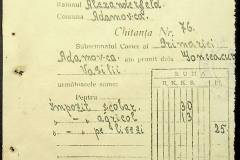 Raionul Alexanderfeld
Comuna Adamovca.
Chitanța Nr. 76.
Subsemnatul Casier al Primăriei
Adamovca am primit dela
Vasilii
următoarele sume:
RUHM
R.K. R.K. R.
Pentru
Impozit școlar 30
" agricol 13
" pe 25